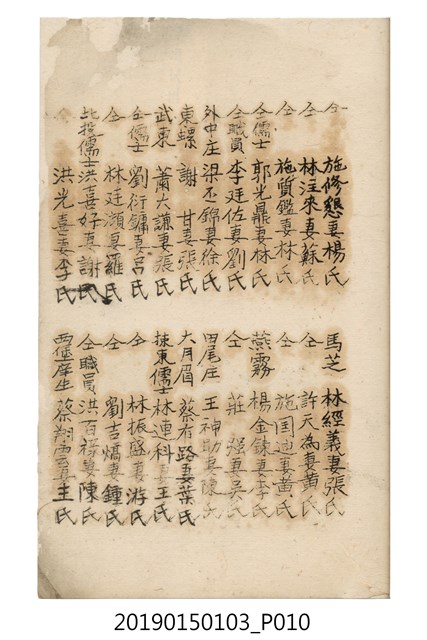 仝 施修懇妻楊氏
仝 林注來妻蘇氏
仝 施質鑑妻林氏
仝儒士 郭光鼎妻林氏
仝職員 李廷佐妻劉氏
外中庄 梁丕錦妻徐氏
東螺 謝 甘妻張氏
武東 蕭大謙妻張氏
仝儒士 劉衍鏞妻呂氏
仝 林廷灝妻羅氏
北投儒士 洪喜好妻謝氏
仝 洪光喜妻李氏
馬芝 林經義妻張氏
仝 許天為妻黃氏
仝 施国迪妻黃氏
燕霧 楊金鍊妻李氏
仝 莊 强妻吳氏
田尾庄 王神助妻陳氏
大月眉 蔡有路妻葉氏
揀東儒士 林連科妻王氏
仝 林振盛妻游氏
仝 劉吉 妻鍾氏
仝職員 洪百祿妻陳氏
西堡庠生 蔡翔雲妻主氏
20190150103_P010